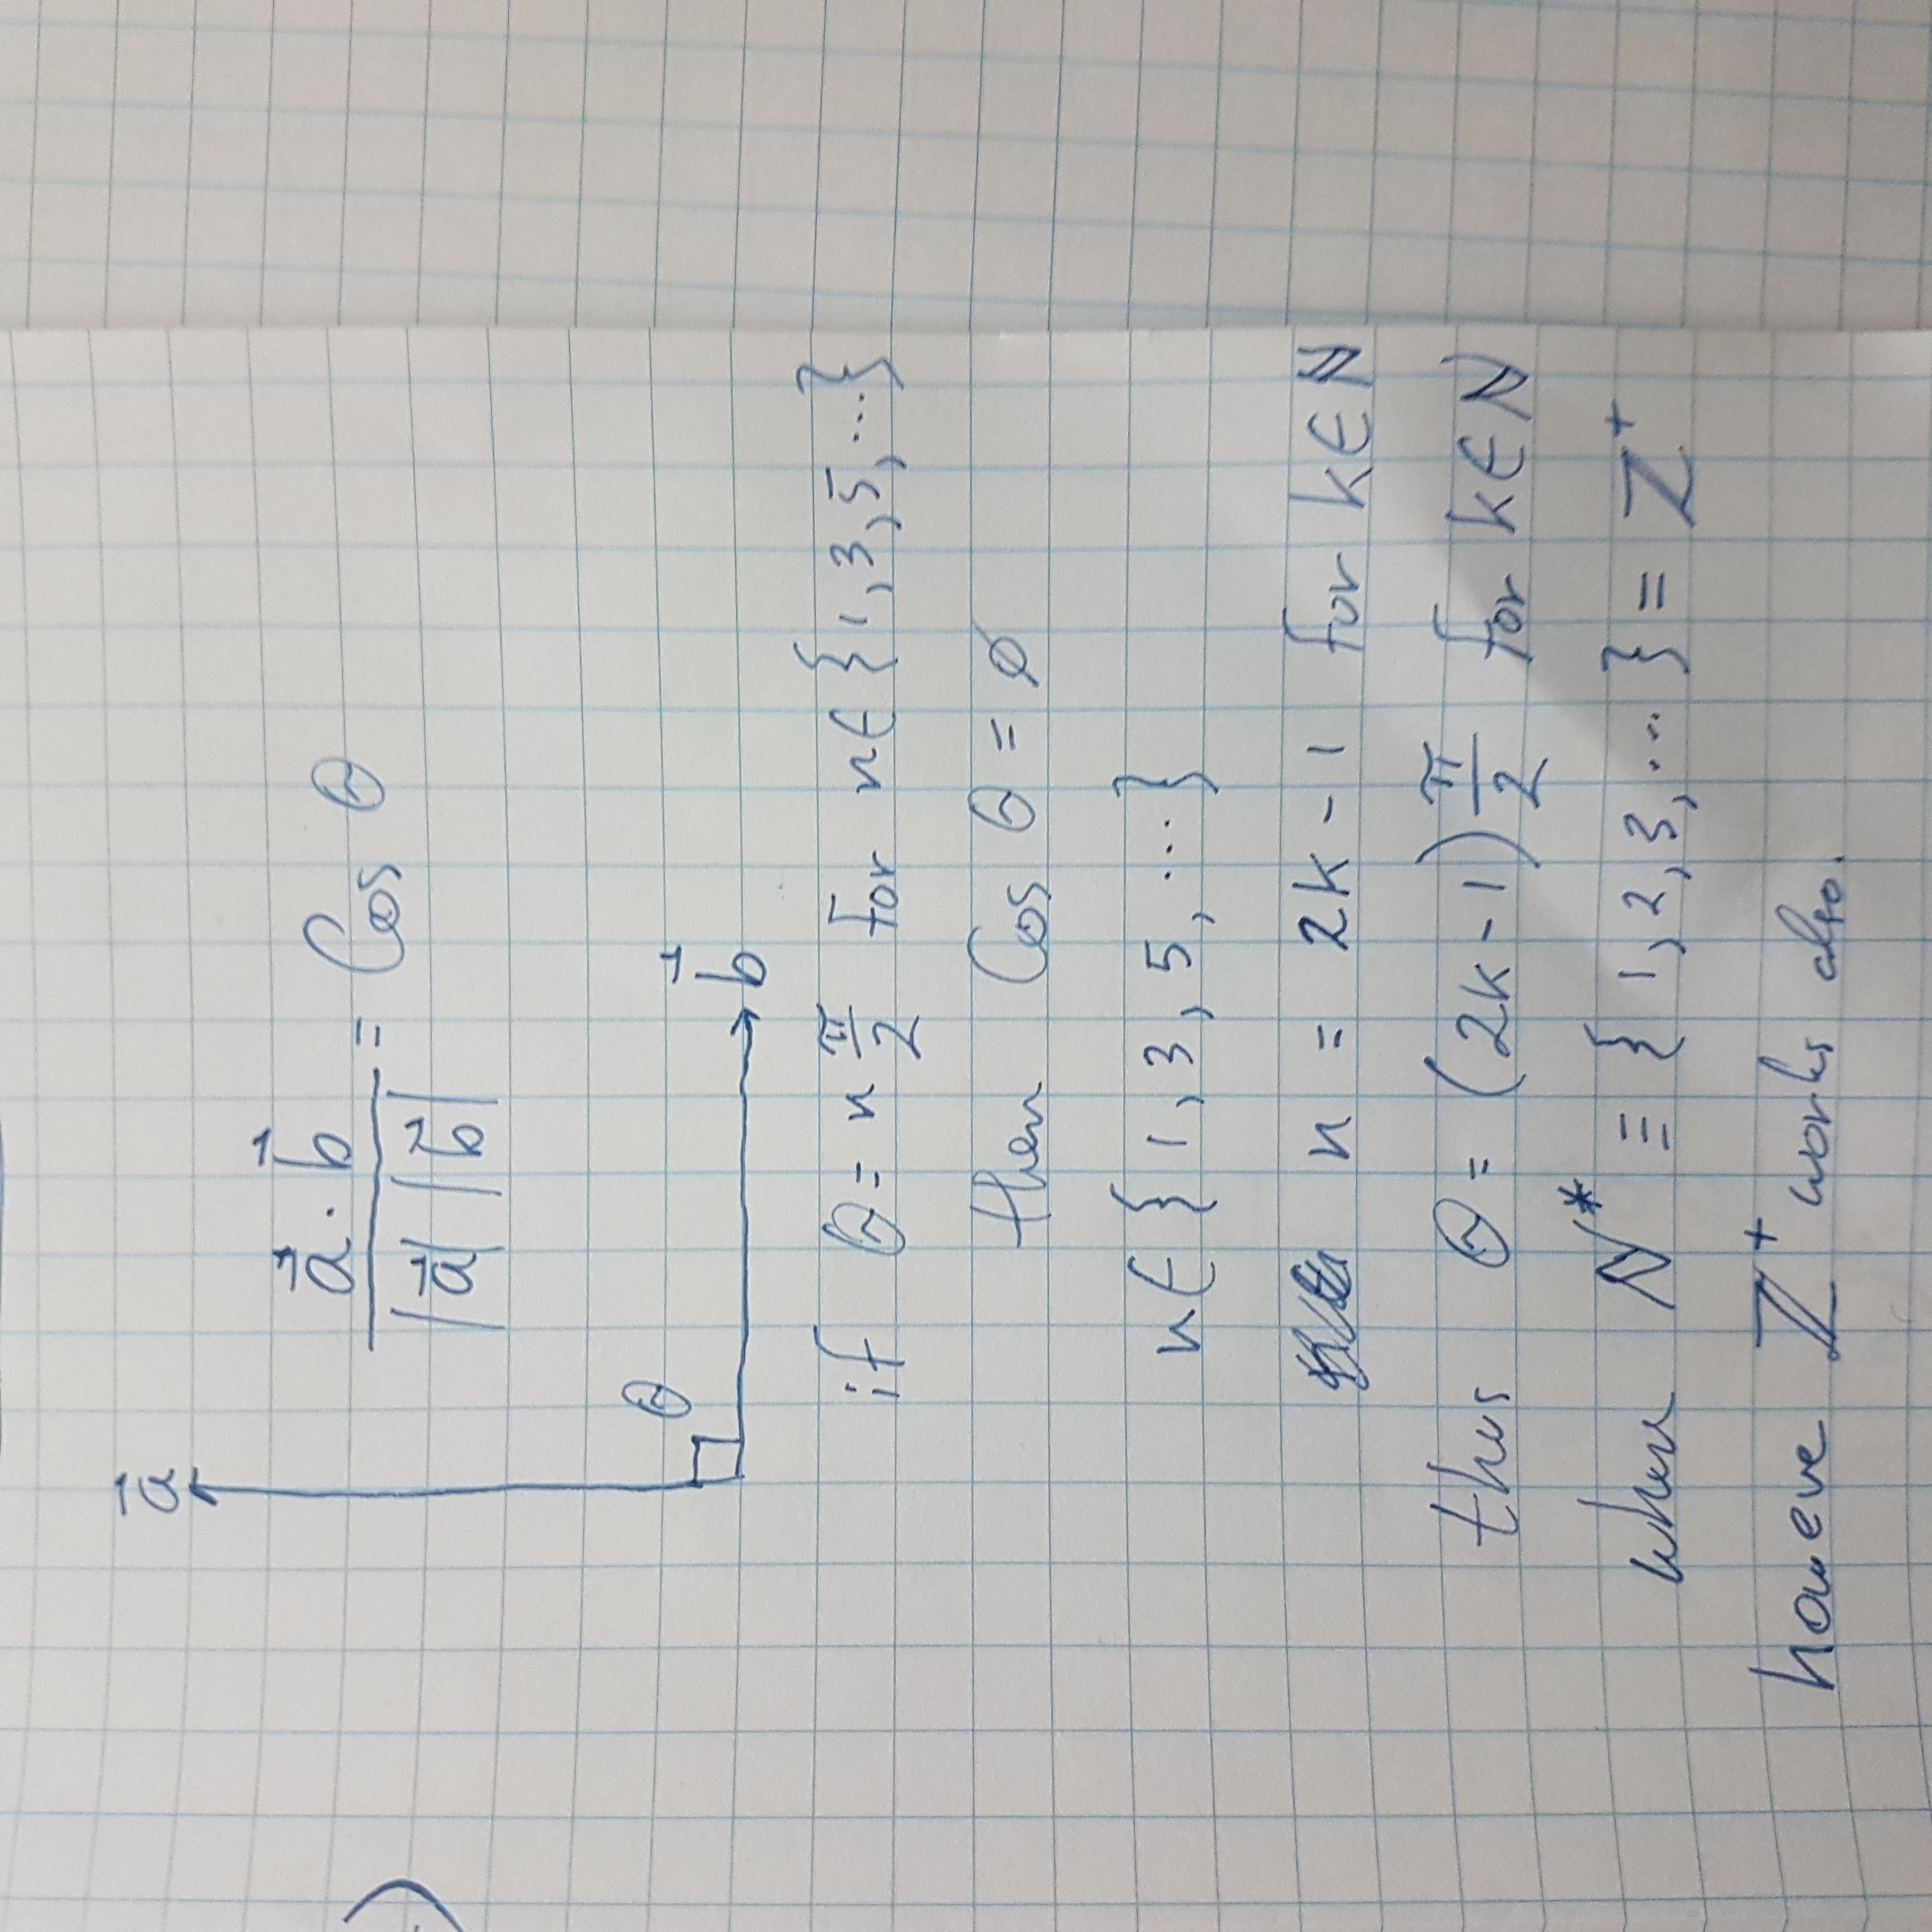 )
a⃗
a⃗ · b⃗
/ |a⃗| |b⃗| = Cos θ
θ
b⃗
if θ = n π/2 for n ∈ {1, 3, 5, ...}
then Cos θ = ø
n ∈ {1, 3, 5, ...}
n = 2k - 1 for k ∈ ℕ
thus θ = (2k - 1) π/2 for k ∈ ℕ
when ℕ* ≡ {1, 2, 3, ...} = ℤ⁺
howeve ℤ⁺ works also.